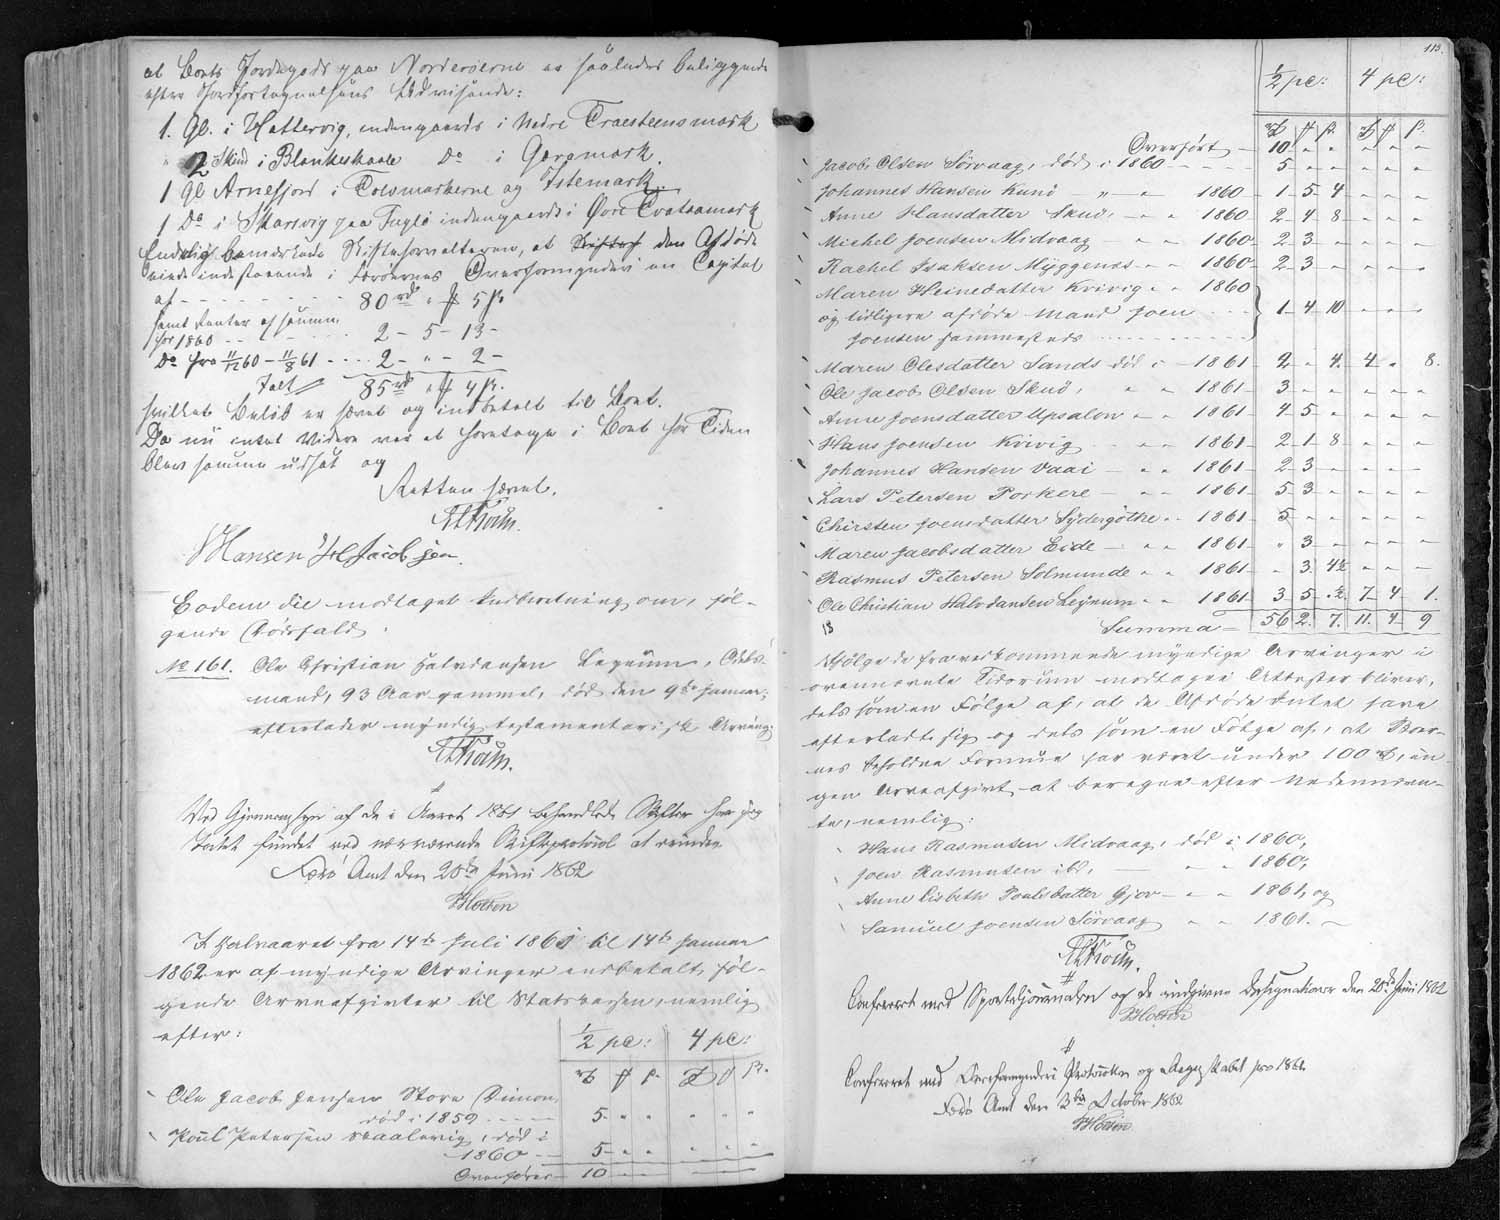 at Boets Jordegods paa Norderöerne er saaledes beliggende
efter Jordfortegnelsens Udvisende:
1. Gl. i Hattervig, indengaards i Nedre Traesteensmark
" 2 Skind i Blankeskaale Do i Garamark.
1 Gl Arnefjord i Tolsmarkerne og Ystemark
1 Do i Skarsvig paa Fuglö indengaards i Øvre Tvataamark
Endelig bemærkede Skifteforvalteren, at den Afdöde
eiede indestaaende i Færöernes Overformynderi en Capital
af - - - 80 rd " ß 5 ß
samt Renter af samme
for 1860 - - 2 - 5 - 13 -
Do fra 11/12 60 - 11/8 61 - - - 2 - " - 2 -
Ialt 85 rd " 4 ß.
hvilket Belöb er hævet og indbetalt til Boet.
Da nu intet Videre var at foretage i Boet for Tiden
blev samme udsat og
Retten hævet.
HC Müller
Hansen Jacobsen
Eodem die modtaget Indberetning om, föl-
gende Dödsfald.
No 161. Ole Christian Halvdansen Leynum, Odels-
mand, 93 Aar gammel, död den 9de Januar;
efterlader myndig testamentarisk Arving.
Ved Gjennemsyn af de i Aaret 1861 behandlede Skifter har jeg
Intet fundet ved nærværende Skifteprotocol at erindre
Færö Amt den 20de Juni 1862
I Halvaaret fra 14de Juli 1861 til 14de Januar
1862 er af myndige Arvinger indbetalt föl-
gende Arveafgivter til Statskassen, nemlig
efter:
1/2 pc: 4 pc:
Ole Jacob Jensen Store Dimon,
död i 1859 - - - 5 - " " " " "
Poul Petersen Skaalevig, död i
1860 - - 5 - " " " " "
Overföres - 10 - - -
113.
1/2 pc: 4 pc:
Overfört - 10 " " " " "
Jacob Olsen Sörvaag, död i 1860 - - - 5 - " " " " "
Johannes Hansen Kunö " " 1860 - 1 - 5 4 - " " "
Anne Hansdatter Skuö, - " " 1860 - 2 - 4 - 8 - " " "
Michel Joensen Midvaag - " " 1860 - 2 3 - " " " "
Rachel Isaksen Myggenæs - " " 1860 - 2 - 3 - " " " "
Maren Heinedatter Kvivig " " 1860
og tidligere afdöde Mand Joen - - - 1 - 4 - 10 - " " "
Joensen sammesteds - - -
Maren Olesdatter Sands död i - 1861 - 2 - " 4. 4 - " 8.
Ole Jacob Olsen Skuö, " " 1861 - 3 - " " " " "
Anne Joensdatter Upsalon - " " 1861 - 4 - 5 - " " " "
Hans Joensen Kvivig - - " " 1861 - 2 - 1 - 8 - " " "
Johannes Hansen Vaai - " " 1861 - 2 - 3 - " " " "
Lars Petersen Porkere - " " 1861 - 5 - 3 - " " " "
Chirsten Joensdatter Sydergöthe " " 1861 - 5 - " " " " "
Maren Jacobsdatter Eide - " " 1861 - " 3 - " " " "
Rasmus Petersen Solmunde " " 1861 - " 3. 4½ - " " "
Ole Christian Halvdansen Leynum " " 1861 - 3 - 5 - ½ 7 - 4 - 1.
18 Summa - 56 2. 7. 11. 4 - 9
Ifölge de fra vedkommende myndige Arvinger i
ovennævnte Tidsrum modtagne Attester bliver,
dels som en Fölge af, at de Afdöde Intet have
efterladt sig og dels som en Fölge af, at Boer-
nes beholdne Formue har været under 100 rd, in-
gen Arveafgivt at beregne efter Nedennævn-
te, nemlig:
Hans Rasmusen Midvaag, död i 1860,
Joen Rasmusen ibd, - " " 1860,
Anne Lisbeth Poulsdatter Gjov - " " 1861, og
Samuel Joensen Sörvaag " " 1861. -
Confereret med Sporteljournalen og de indgivne Designationer den 20de Juni 1862
Confereret med Overformynderi Protocollen og Regnskabet pro 1861.
Færö Amt den 3die October 1862